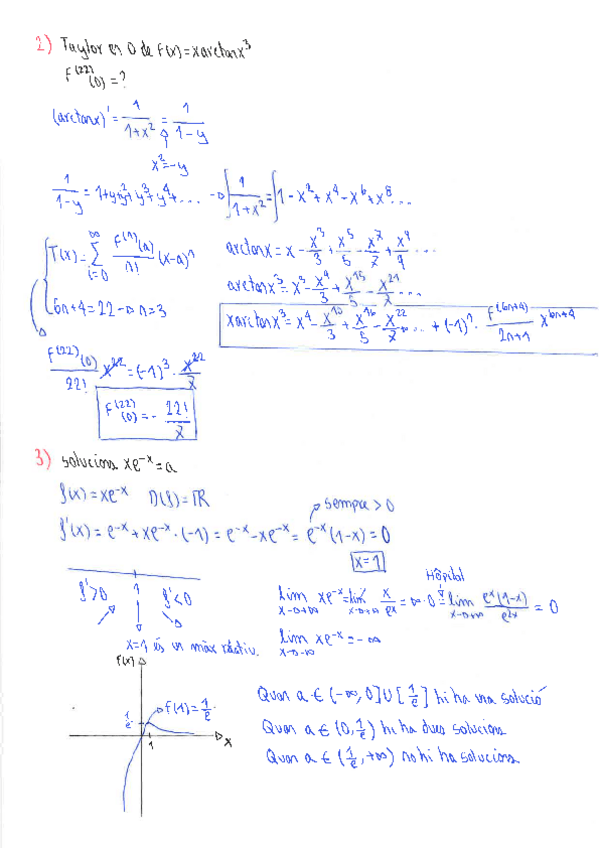 2) Taylor en 0 de F(x) = x arctan x³
F⁽²²⁾(0) = ?
(arctan x)' = 1/(1+x²) = 1/(1-y)
x² = -y
1/(1-y) = 1+y+y²+y³+y⁴+... → ∫ 1/(1+x²) = ∫ 1-x²+x⁴-x⁶+x⁸...
T(x) = ∑_{i=0}^{∞} F⁽ⁿ⁾(a)/n! (x-a)ⁿ
arctan x = x - x³/3 + x⁵/5 - x⁷/7 + x⁹/9 ...
arctan x³ = x³ - x⁹/3 + x¹⁵/5 - x²¹/7 ...
6n+4 = 22 → n=3
x arctan x³ = x⁴ - x¹⁰/3 + x¹⁶/5 - x²²/7 ... + (-1)ⁿ · F⁽⁶ⁿ⁺⁴⁾/(2n+1) x⁶ⁿ⁺⁴
F⁽²²⁾(0)/22! x²² = (-1)³ · x²²/7
F⁽²²⁾(0) = - 22!/7
3) solucions xe⁻ˣ = a
f(x) = xe⁻ˣ D(f) = ℝ
sempre > 0
f'(x) = e⁻ˣ + xe⁻ˣ · (-1) = e⁻ˣ - xe⁻ˣ = e⁻ˣ(1-x) = 0
x = 1
f' > 0 1 f' < 0
x=1 és un màx relatiu.
Hôpital
lim_{x→+∞} xe⁻ˣ = lim_{x→+∞} x/eˣ = ∞·0 = lim_{x→+∞} eˣ(1-x)/e²ˣ = 0
lim_{x→-∞} xe⁻ˣ = -∞
F(x)
F(1) = 1/e
1/e
1
x
Quan a ∈ (-∞, 0] ∪ [1/e] hi ha una solució
Quan a ∈ (0, 1/e) hi ha dues solucions
Quan a ∈ (1/e, +∞) no hi ha solucions